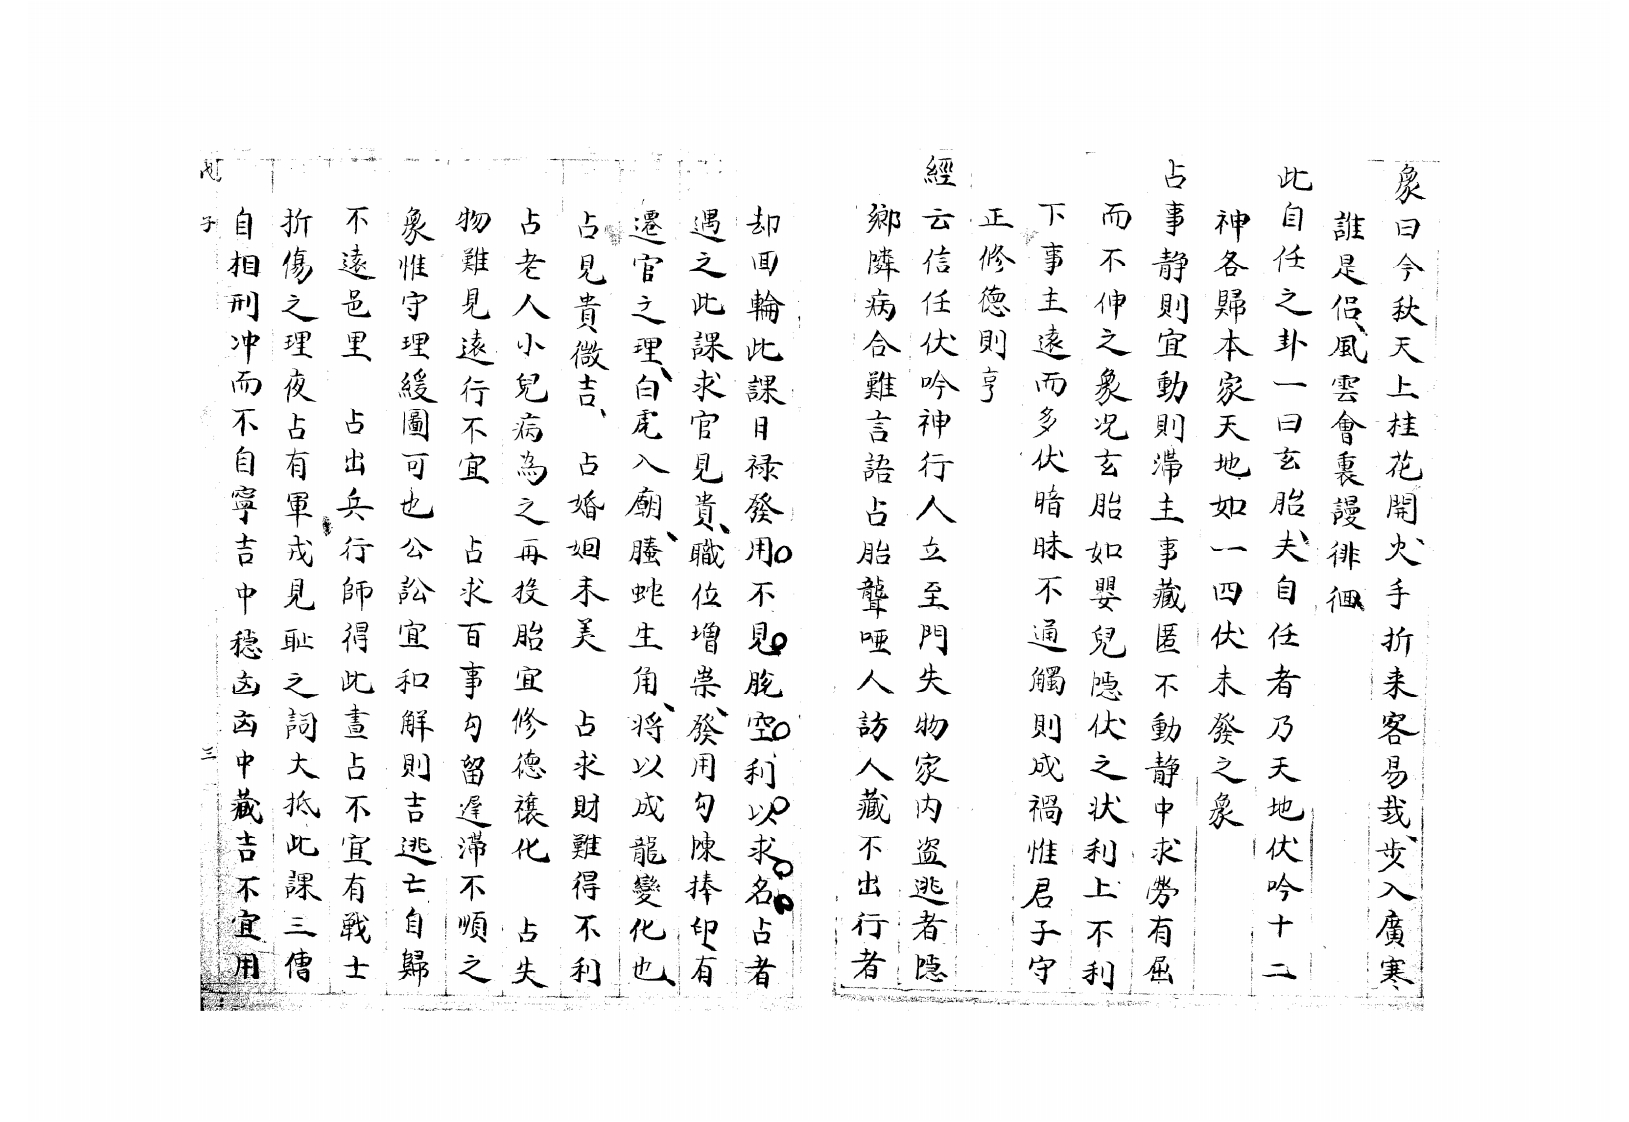 象曰今秋天上桂花開火手折来客易哉步入廣寒
誰是侶風雲會裏謾徘徊
此自任之卦一曰玄胎夫自任者乃天地伏吟十二
神各歸本家天地如一四伏未發之象
占事静則宜動則滞主事藏匿不動静中求勞有屈
而不伸之象况玄胎如嬰兒隠伏之状利上不利
下事主遠而多伏暗昧不通觸則成禍惟君子守
正修德則亨
經云信任伏吟神行人立至門失物家内盗逃者隠
鄉隣病合難言語占胎聾啞人訪人藏不出行者
却回輪此課日禄發用不見脫空利以求名占者
遇之此課求官見貴職位增崇發用勾陳捧印有
遷官之理白虎入廟螣蛇生角将以成龍變化也
占見貴微吉 占婚姻未美 占求財難得不利
占老人小兒病為之再投胎宜修德禳化 占失
物難見遠行不宜 占求百事勾留遅滞不順之
象惟守理緩圖可也公訟宜和解則吉逃亡自歸
不遠邑里 占出兵行師得此晝占不宜有戰士
折傷之理夜占有軍戎見耻之詞大抵此課三傳
自相刑冲而不自寧吉中穏凶凶中藏吉不宜用
戊子 三